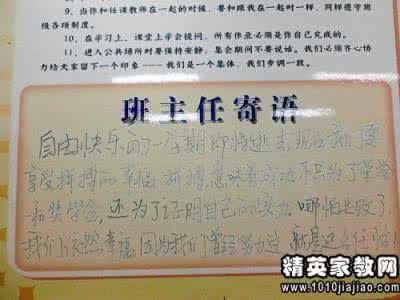 9、当你和任课教师在一起的时候，要和跟我在一起时一样，同样遵守班
级各项制度。
10、在学习上，课堂上学会提问，所有作业必须是你自己完成的。
11、进入公共场所时要保持安静；集会期间不要说话。我们必须齐心协
力给大家留下一个印象——我们是一个集体，我们步调一致。
班主任寄语
自由快乐的一学期即将逝去，现在我们要
享受拼搏的幸福，拼搏意味着成功，不只为了荣誉
和奖学金，还为了证明自己的实力。哪怕失败了，
我们仍然幸福，因为我们曾经努力过，
精英家教网
www.1010jiajiao.com